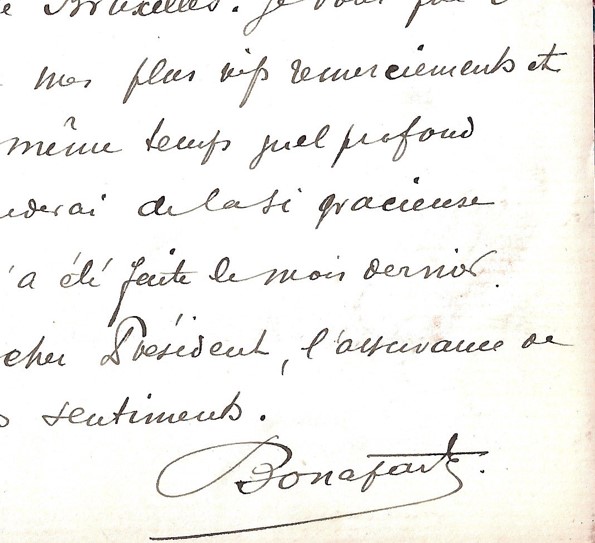 Bruxelles. Je vous prie
mes plus vifs remerciements et
même temps quel profond
nderai de la si gracieuse
'a été faite le mois dernier.
cher Président, l'assurance de
s sentiments.
Bonaparte.